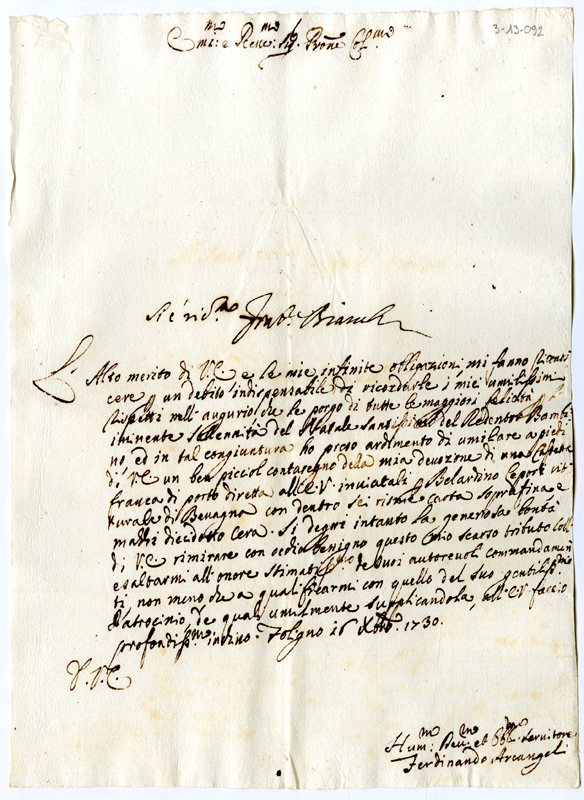 3-13-092
Em.mo e Rev.mo Sig. Prone Col.mo
Si è rid.
Alto merito di V.E. e le mie infinite obligazioni mi fanno
cere un debito indispensabile di ricordarle i miei umilissimi
rispetti nell'augurio che le porgo di tutte le maggiori felicità
iminente sollennità del Natale Santissimo del Redentor Bambi
no, ed in tal congiuntura ho preso ardimento di umiliare a piedi
di V.E. un ben picciol contrasegno della mia devozione di una
franca di porto diretta all'E.V. inviatali Belardino vit
turale di Bevagna con dentro sei risme carta soprafina e
mazzi diecidotto Cera. Si degni intanto la generosa bontà
di V.E. rimirare con occhio benigno questo mio scarso tributo coll'
esaltarmi all'onore de suoi autorevoli commandamen
ti, non meno che a qualificarmi con quello del suo gentiliss.mo
Patrocinio, e qual umilmente supplicandola, all'E.V. faccio
profondiss.mo inchino. Foligno 16 Xbre 1730.
D. V.E.
Hum.mo Dev.mo et Obl.mo Servitore
Ferdinando Arcangeli